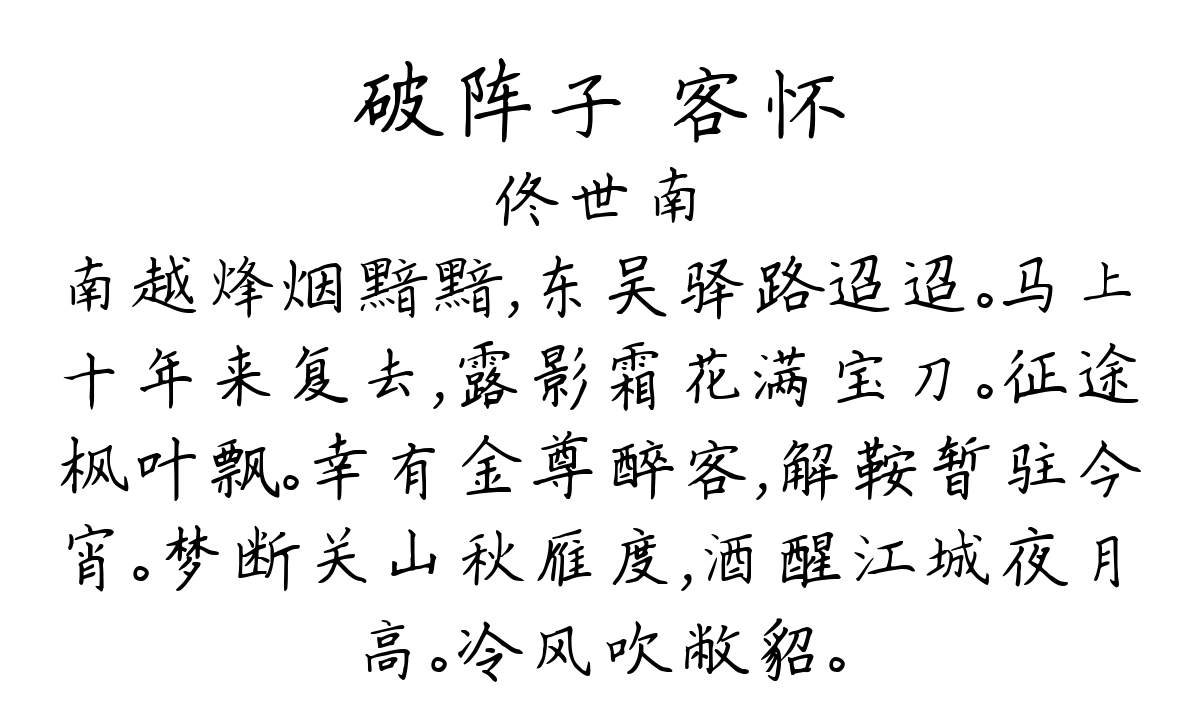 破阵子 客怀
佟世南
南越烽烟黯黯,东吴驿路迢迢。马上
十年来复去,露影霜花满宝刀。征途
枫叶飘。幸有金尊醉客,解鞍暂驻今
宵。梦断关山秋雁度,酒醒江城夜月
高。冷风吹敝貂。